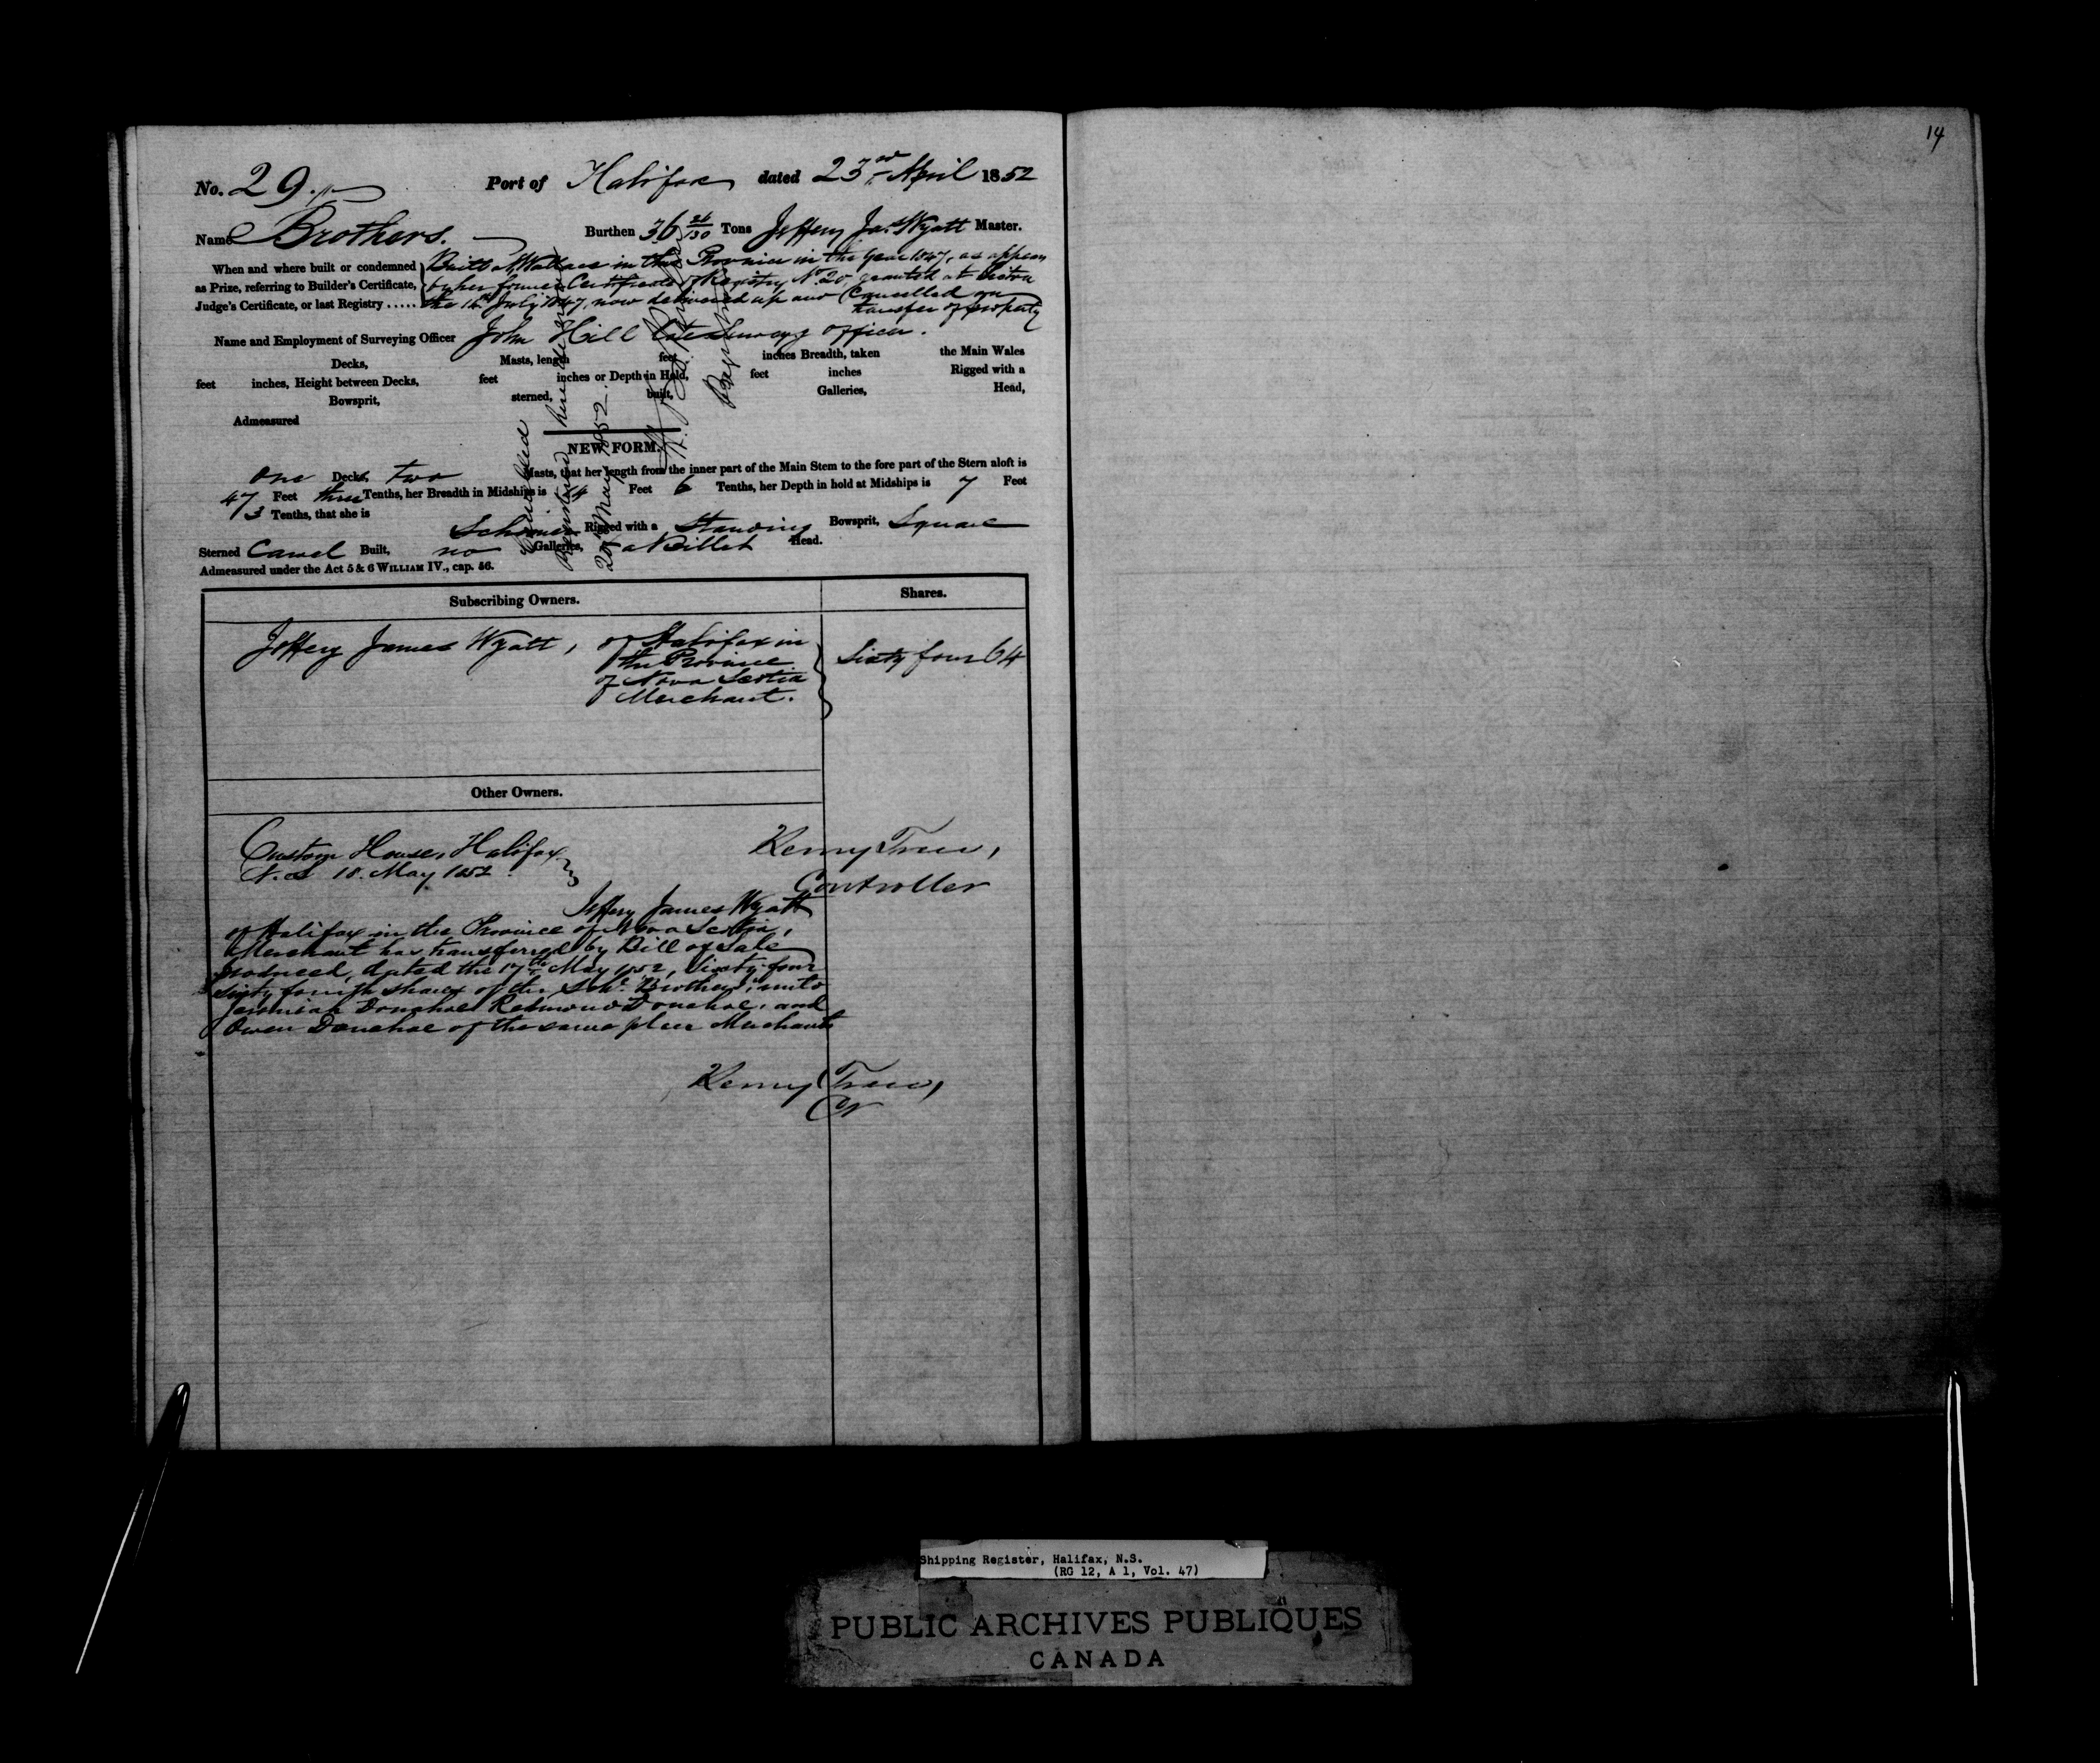 14
No. 29.
Port of Halifax dated 23rd April 1852
Name Brothers. Burthen 36 26/130 Tons Jeffery Jas. Wyatt Master.
When and where built or condemned Built at Wallace in this Province in the Year 1847, as appears
as Prize, referring to Builder's Certificate, by her former Certificate of Registry No. 20, granted at Pictou
Judge's Certificate, or last Registry ..... the 16th July 1847, now delivered up and Cancelled on
transfer of property
Name and Employment of Surveying Officer John Hill late Surveyg officer.
Decks, Masts, length feet inches Breadth, taken the Main Wales
feet inches, Height between Decks, feet inches or Depth in Hold, feet inches Rigged with a
Bowsprit, sterned, built, Galleries, Head,
Admeasured
Cancelled
Registered here de novo
20 May 1852.
NEW FORM.
One Decks, two Masts, that her length from the inner part of the Main Stem to the fore part of the Stern aloft is
47 Feet three Tenths, her Breadth in Midships is 14 Feet 6 Tenths, her Depth in hold at Midships is 7 Feet
3 Tenths, that she is
Schooner Rigged with a Standing Bowsprit, Square
Sterned Carvel Built, no Galleries, a Billet Head.
Admeasured under the Act 5 & 6 WILLIAM IV., cap. 56.
Subscribing Owners. Shares.
Jeffery James Wyatt, of Halifax in
the Province
of Nova Scotia
Merchant.
Sixty four 64
Other Owners.
Custom House, Halifax
N.S. 18. May 1852.
Controller
Jeffery James Wyatt
of Halifax in the Province of Nova Scotia,
Merchant has transferred by Bill of Sale
produced, dated the 17th May 1852, Sixty four
sixty fourth shares of the Schr. "Brothers", unto
Jeremiah Donohoe Redmund Donohoe, and
Owen Donohoe of the same place Merchants
Cr
Shipping Register, Halifax, N.S.
(RG 12, A 1, Vol. 47)
PUBLIC ARCHIVES PUBLIQUES
CANADA